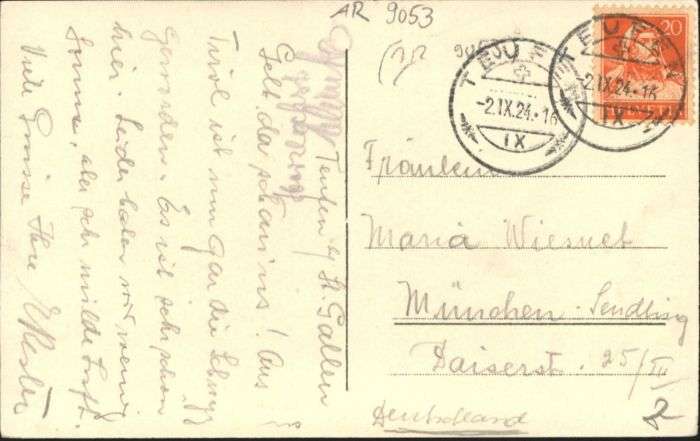 AR 9053
Teufen b/ St. Gallen
Gelt, da schauns! Aus
Tirol ist nun gar die Schweiz
geworden. Es ist sehr schön
hier. Leider haben wir wenig
Sonne, aber sehr milde Luft.
Viele Grüsse Ihre
TEUFEN
-2.IX.24-16
IX
TEUFEN
-2.IX.24-16
IX
20
HELVETIA
Fräulein
Maria Wiesnet
München-Sendling
Daiserst. 25/III
Deutschland
2